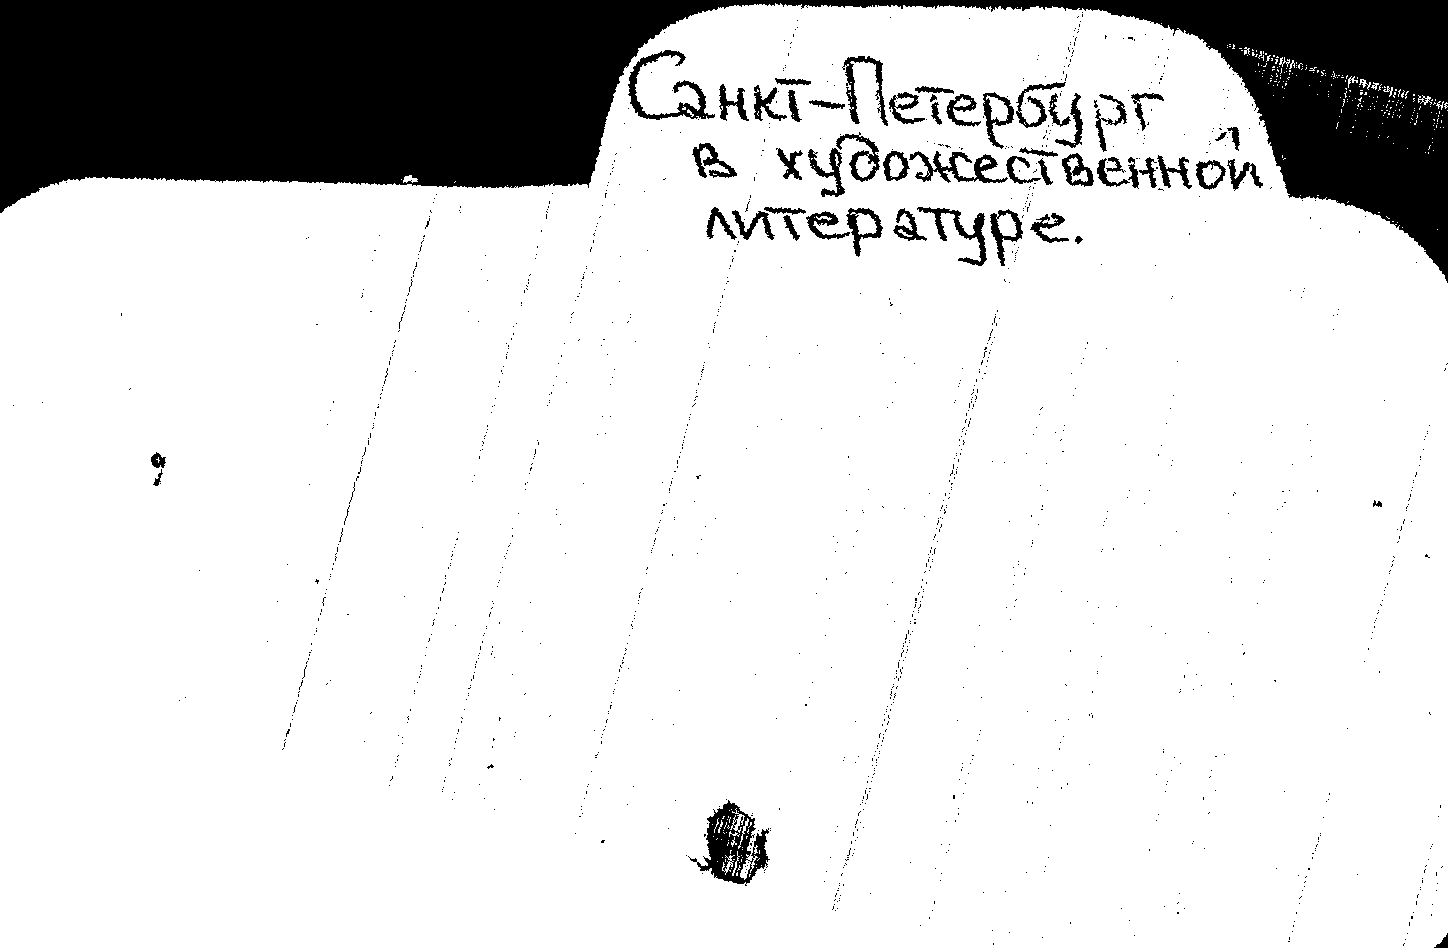 Санкт-Петербург
в художественной
литературе.